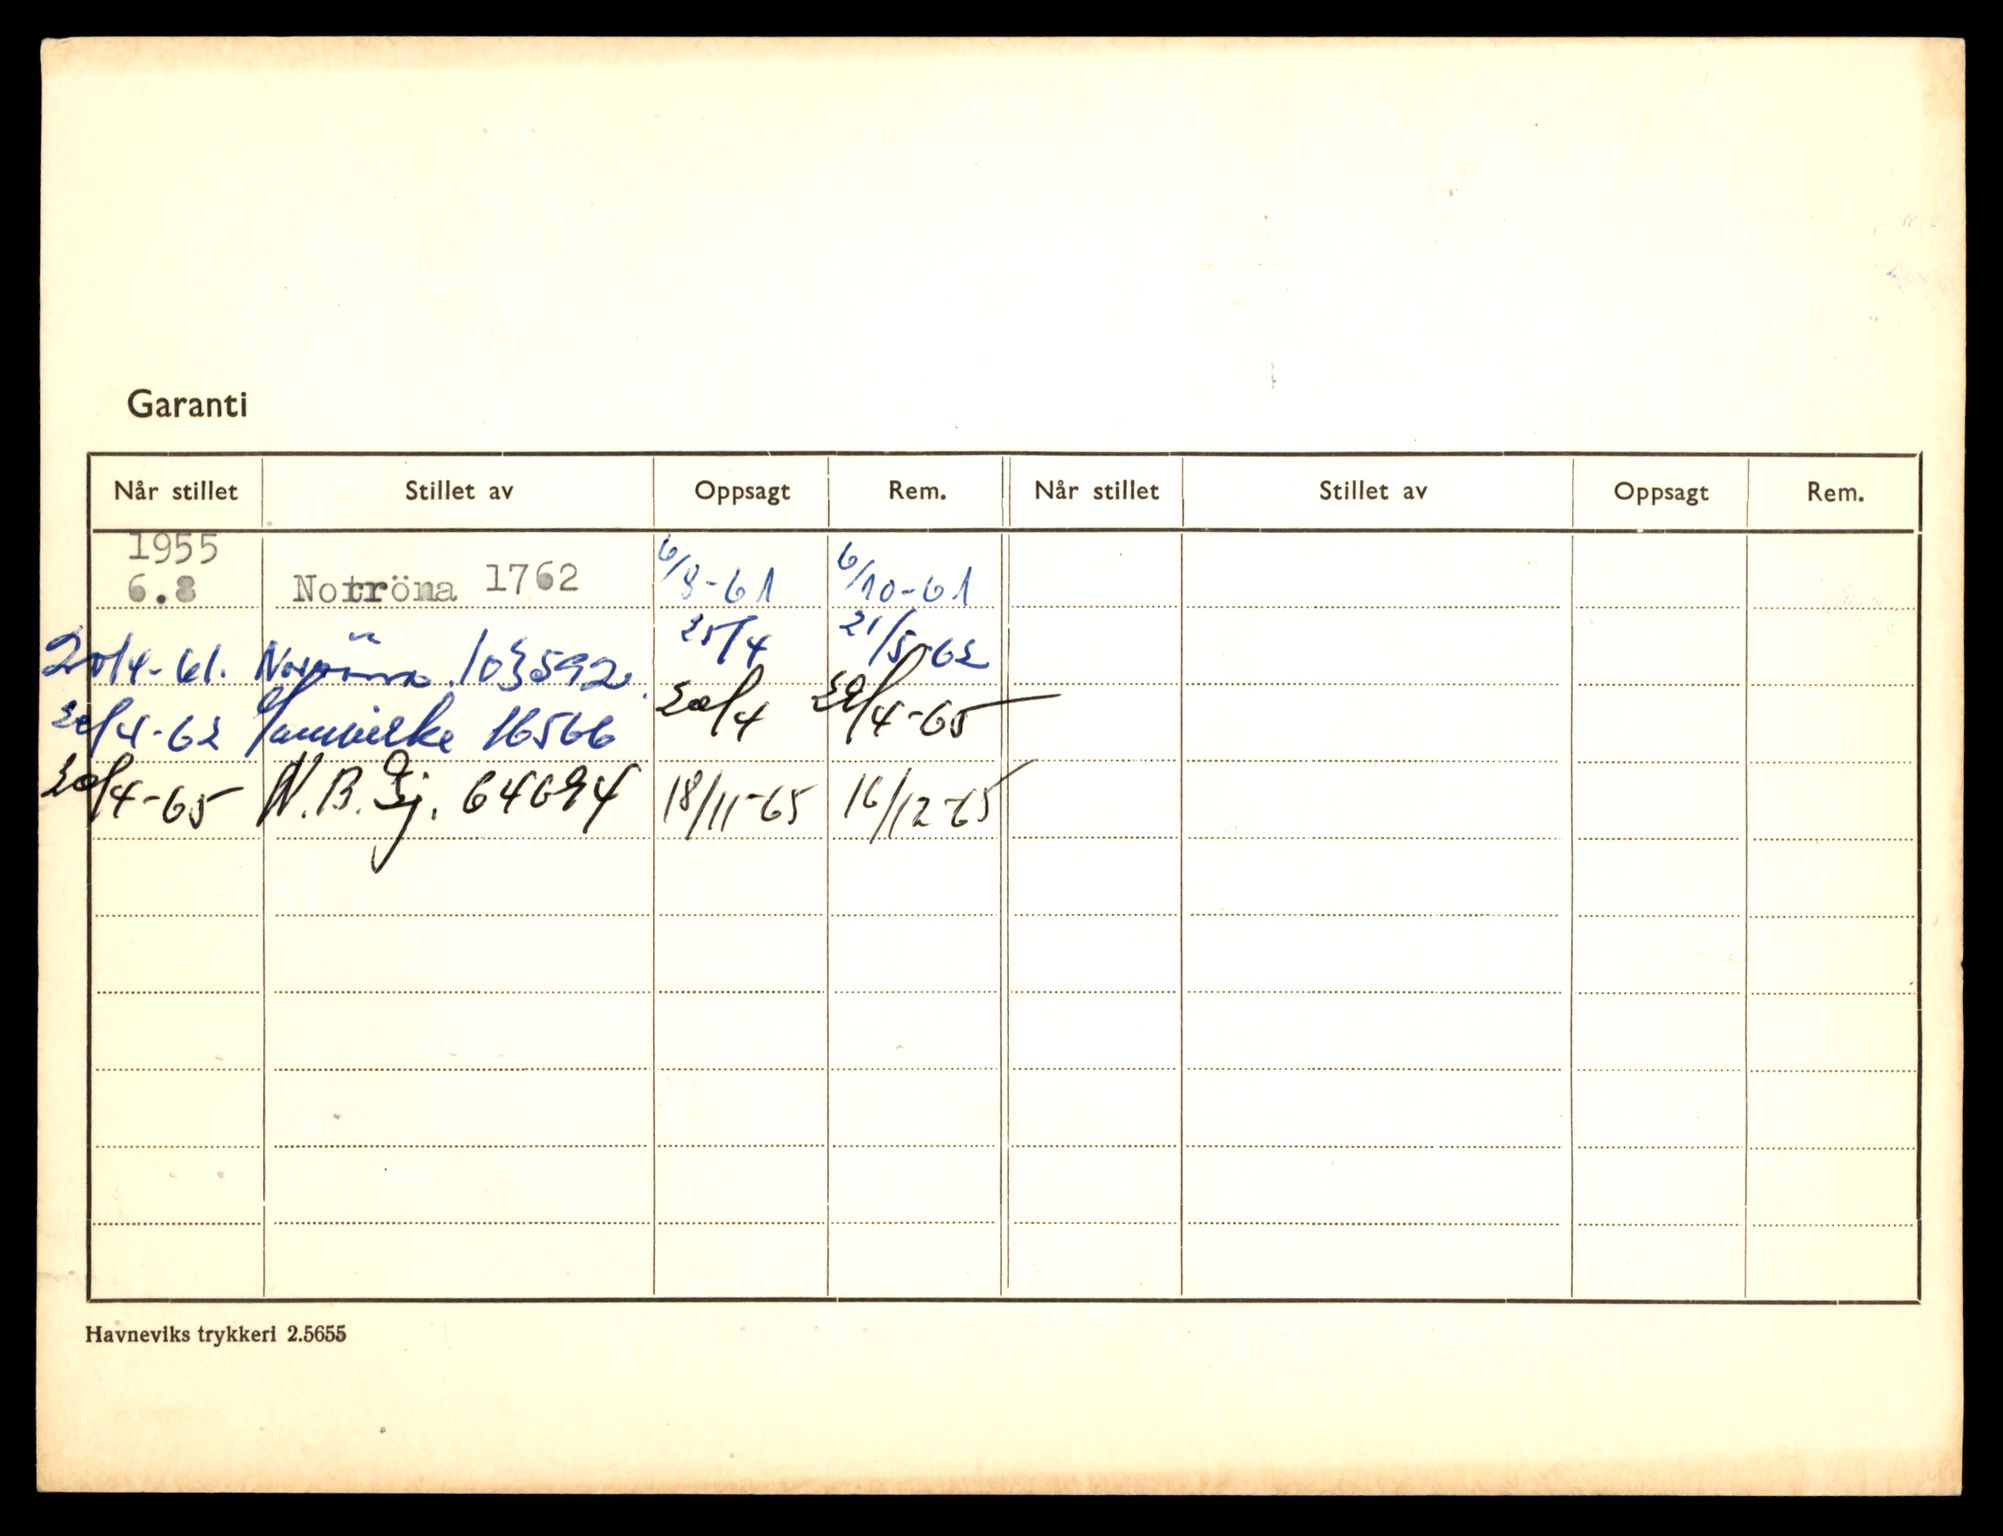 Garanti
Når stillet Stillet av Oppsagt Rem. Når stillet Stillet av Oppsagt Rem.
1955
6.8 Norröna 1762 6/8-61 6/10-61
20/4-61. Norröna 103592. 25/4 21/5-62
20/4-62 Samvirke 16566 20/4 29/4-65
20/4-65 N.B. 64694 18/11-65 16/12-65
Havneviks trykkeri 2.5655